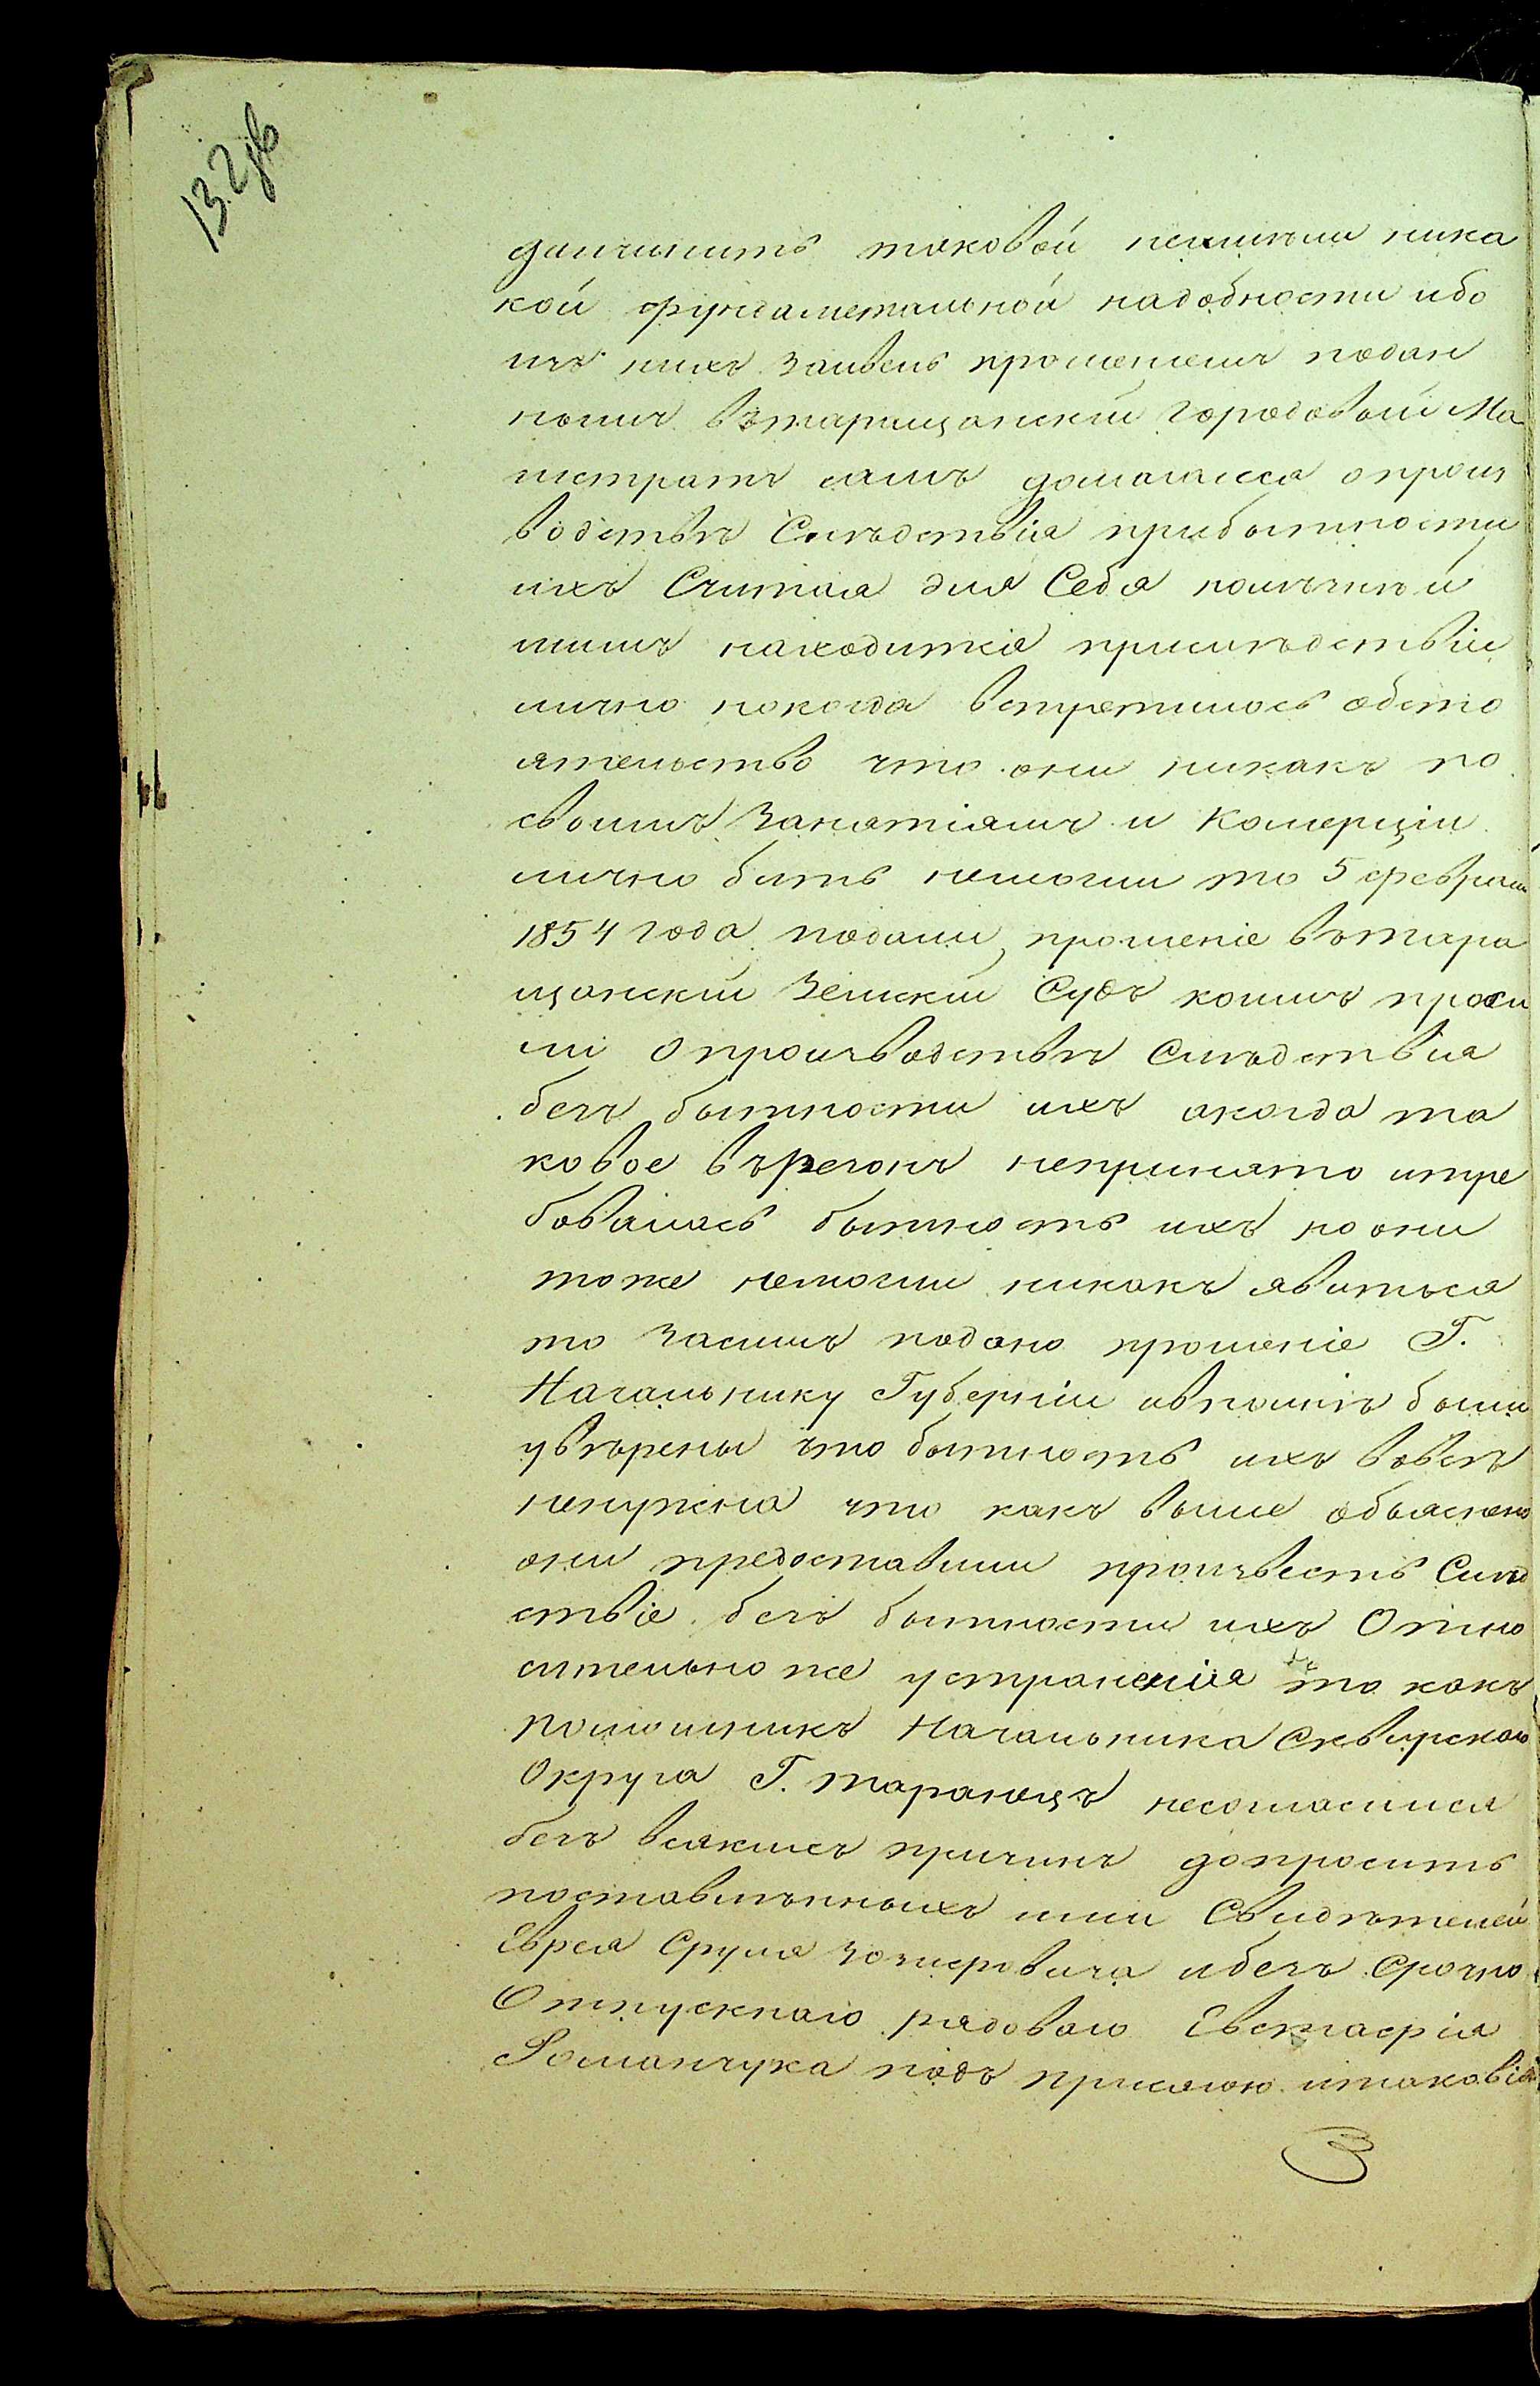 132об
данчинить таковой неимѣли ника
кой фундаметальной надобности ибо
изъ нихъ Заивель прошениемъ подан
нымъ вътаращанский Городовый Ма
гистратъ самъ домагался опроиз
водствѣ Слѣдствія прибытности
ихъ Считая для Себя
находится прислѣдствіи
лично нокогда встретилось обсто
ятельство что они никакъ по
своимъ Занятіямъ и Комерціи
лично бить немогли то 5 февраля
1854 года подали прошеніе вътара
щанский Земский Судъ коимъ проси
ли опроизводствѣ Слѣдствія
безъ бытности ихъ акогда та
ковое върезонъ непринято итре
бовалась бытность ихъ но они
тоже немогли никакъ явиться
то Засимъ подано прошеніе Г.
Начальнику Губерніи ивполнѣ были
увѣрены что бытность ихъ вовсѣ
ненужна что какъ выше объяснено
они предоставили произвесть Слѣд
ствіе безъ бытности ихъ Отно
сительно же устраненія то какъ
помошникъ Начальника Сквирскаго
Округа Г. таранецъ несогласился
безъ всякихъ причинъ допросить
поставлѣнныхъ ими Свидѣтелей
Еврея Сруля Зозировича ибезъ Срочно
Отпускнаго рядоваго Евстафія
Романчука подъ присягою итаковія